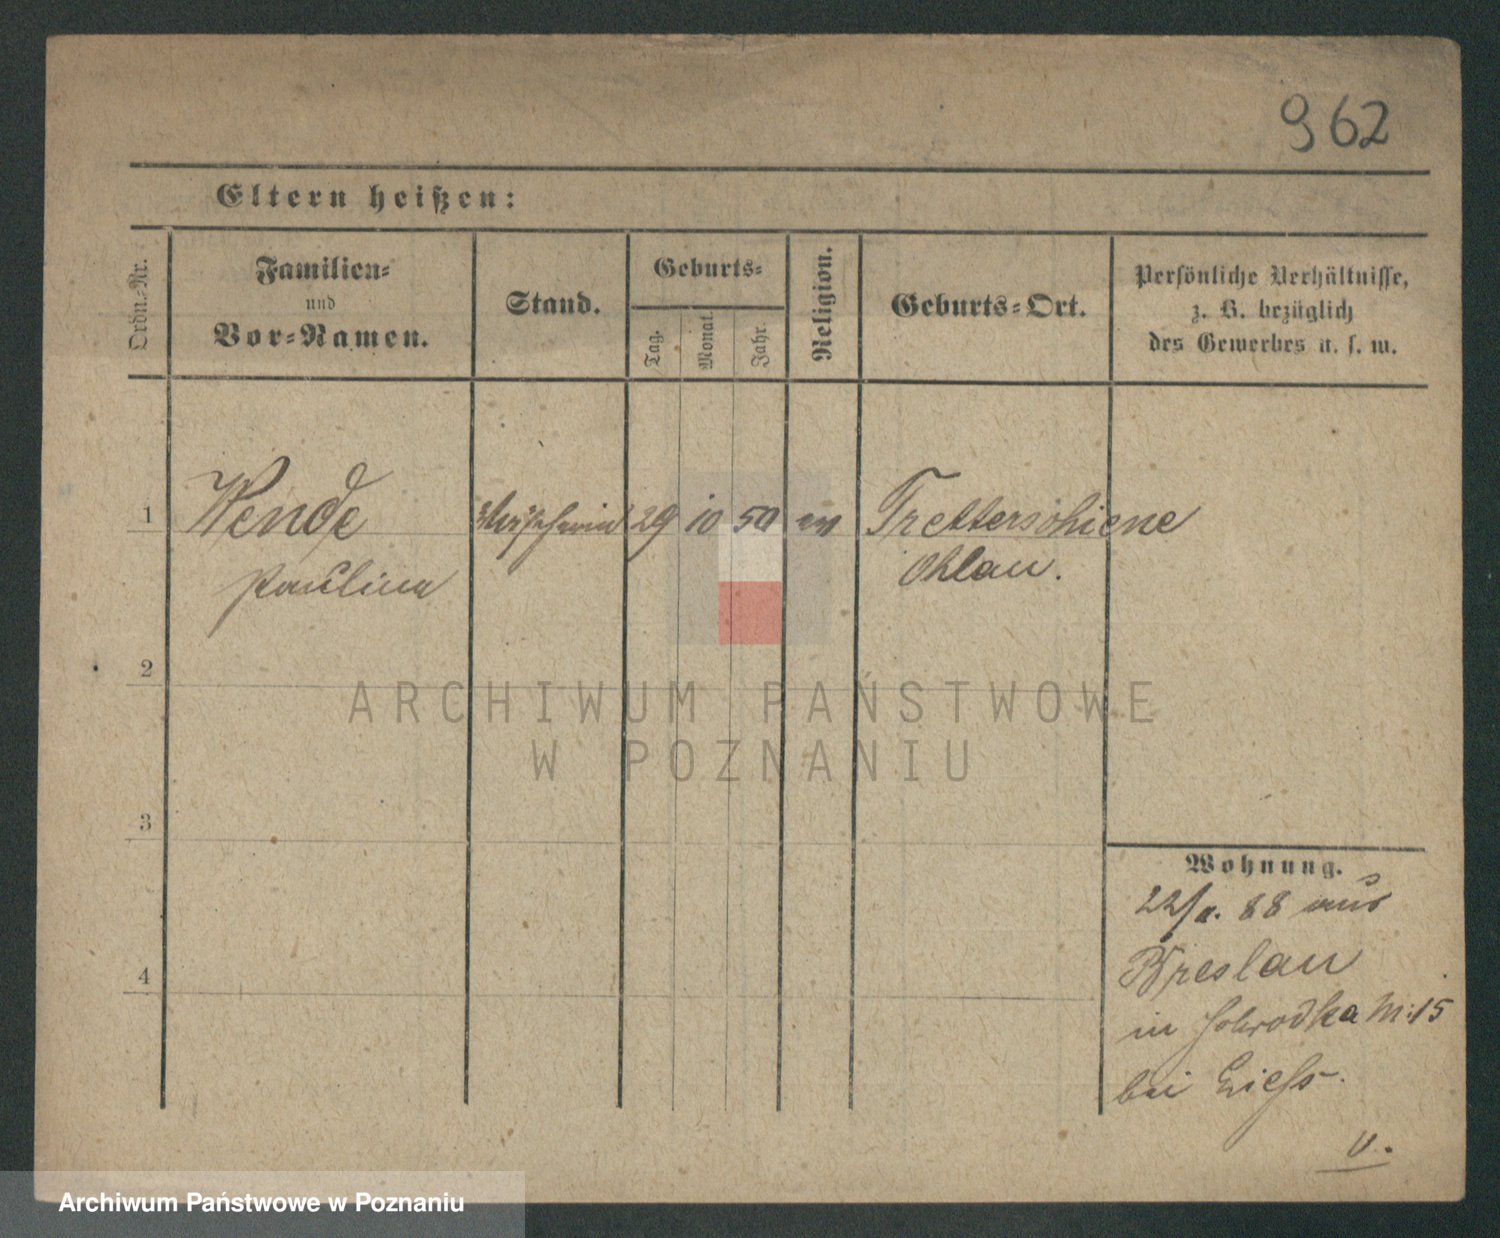 962
Eltern heißen:
Ordn.-Nr.
Familien-
und
Vor-Namen.
Stand.
Geburts-
Tag.
Monat.
Jahr.
Religion.
Geburts-Ort.
Persönliche Verhältnisse,
z. B. bezüglich
des Gewerbes u. s. w.
1 Wende 29 10 50 ev Tretterschiene
Paulina Ohlau.
2
3
4
ARCHIWUM PAŃSTWOWE
W POZNANIU
Wohnung.
88 aus
Breslau
in Schrodka 15
bei
v.
Archiwum Państwowe w Poznaniu